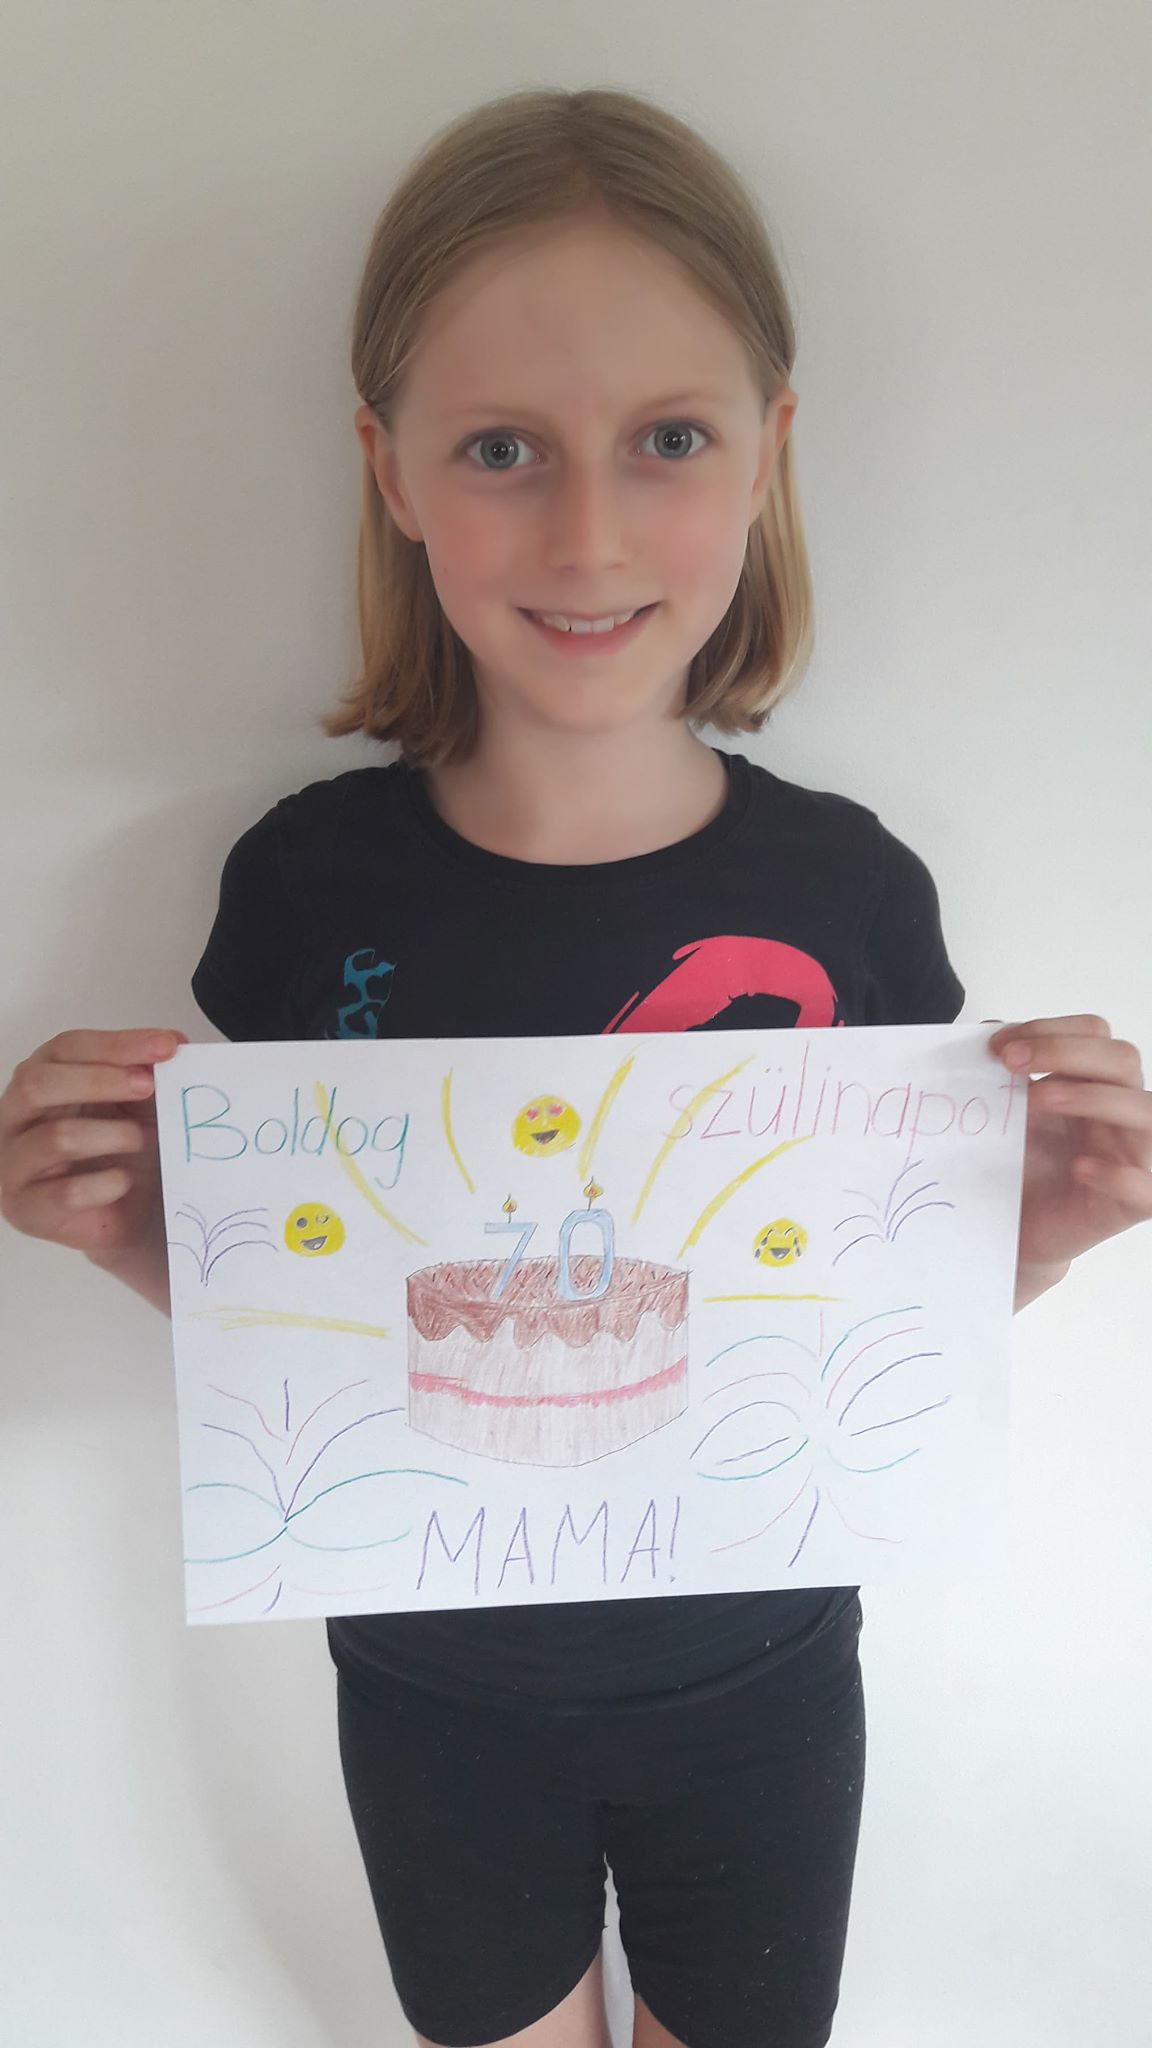 Boldog szülinapot
70
MAMA!